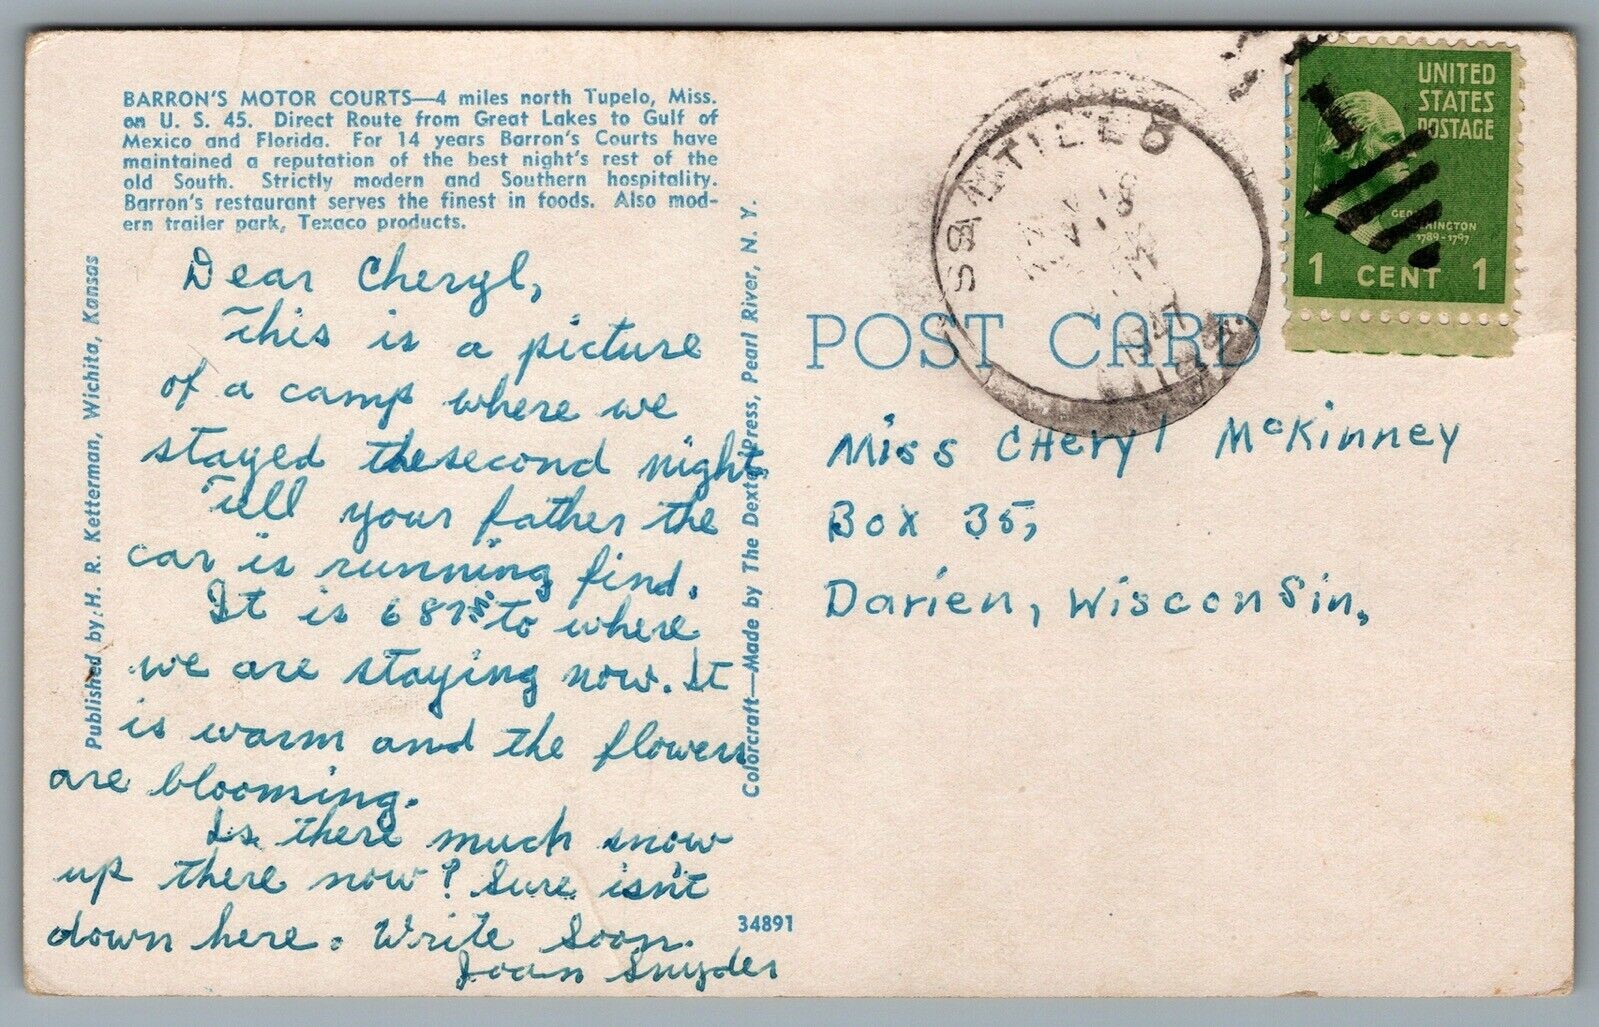 BARRON'S MOTOR COURTS—4 miles north Tupelo, Miss.
on U. S. 45. Direct Route from Great Lakes to Gulf of
Mexico and Florida. For 14 years Barron's Courts have
maintained a reputation of the best night's rest of the
old South. Strictly modern and Southern hospitality.
Barron's restaurant serves the finest in foods. Also mod-
ern trailer park, Texaco products.
Dear Cheryl,
This is a picture
of a camp where we
stayed the second night.
Tell your father the
car is running find.
It is 687 to where
we are staying now. It
is warm and the flowers
are blooming.
Is there much snow
up there now? Sure isn't
down here. Write Soon.
Joan Snyder
Published by H. R. Ketterman, Wichita, Kansas
Colorcraft—Made by The Dexter Press, Pearl River, N. Y.
34891
POST CARD
SALTILLO
UNITED
STATES
POSTAGE
1789-1797
1 CENT 1
Miss CHeryl McKinney
Box 35,
Darien, WisconSin.